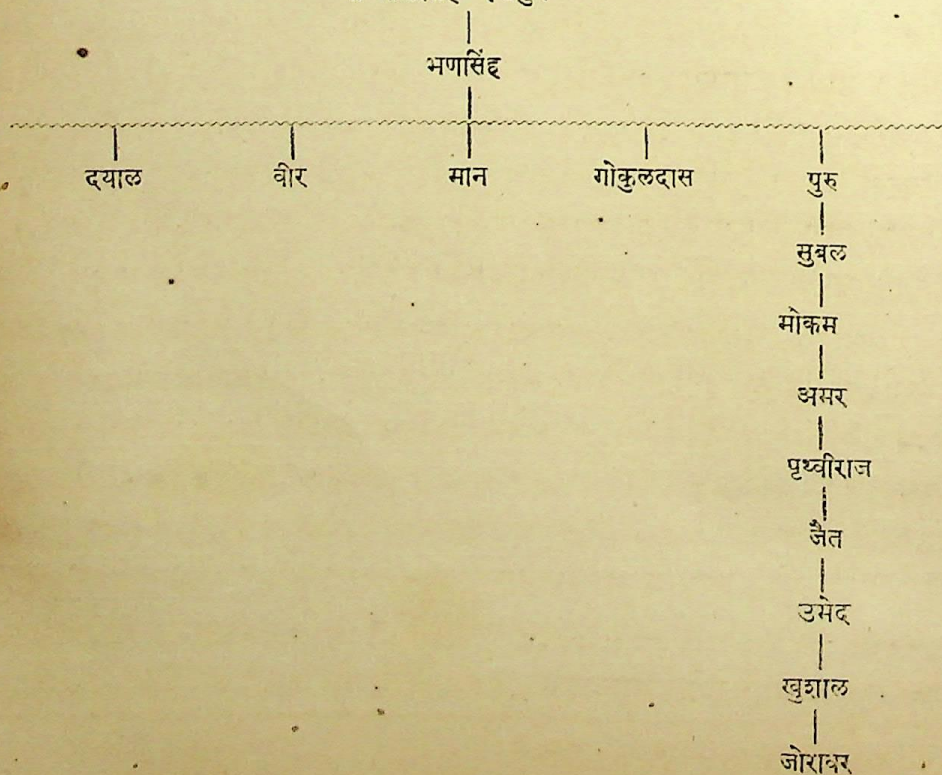 भणसिंह
दयाल वीर मान गोकुलदास पुरु
सुबल
मोकम
अमर
पृथ्वीराज
जैत
उमेद
खुशाल
जोरावर